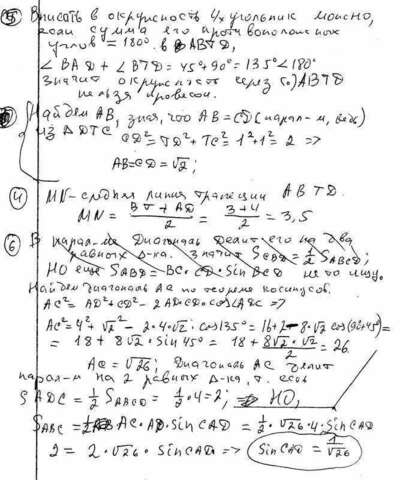 ⑤ Вписать в окружность 4х угольник можно,
если сумма его противоположных
углов = 180° в ABTD,
∠BAD + ∠BTD = 45° + 90° = 135° < 180°
значит окружность через (·) ABTD
нельзя провести.
Найдем AB, зная, что AB = CD (парал-м,
из ΔDTC CD² = TD² + TC² = 1² + 1² = 2 =>
AB = CD = √2;
④ MN - средняя линия трапеции ABTD.
MN = (BT + AD)/2 = (3+4)/2 = 3,5
⑥ В парал-ме диагональ делит его на два
равных Δ-ка. Значит S_CBD = 1/2 S_ABCD;
Но еще S_ABCD = BC · CD · Sin BCD
Найдем диагональ AC по теореме косинусов.
AC² = AD² + CD² - 2AD·CD·cos(ADC =>
AC² = 4² + √2² - 2·4·√2·cos135° = 16+2-8·√2 cos(90+45) =
= 18 + 8√2 · Sin 45° = 18 + 8√2·√2/2 = 26
AC = √26; Диагональ AC делит
парал-м на 2 равных Δ-ка, т. есть
S ADC = 1/2 S_ABCD = 1/2 · 4 = 2; НО,
S_ABC = 1/2 AC · AD · sin CAD = 1/2 · √26 · 4 · Sin CAD
2 = 2 · √26 · Sin CAD => Sin CAD = 1/√26